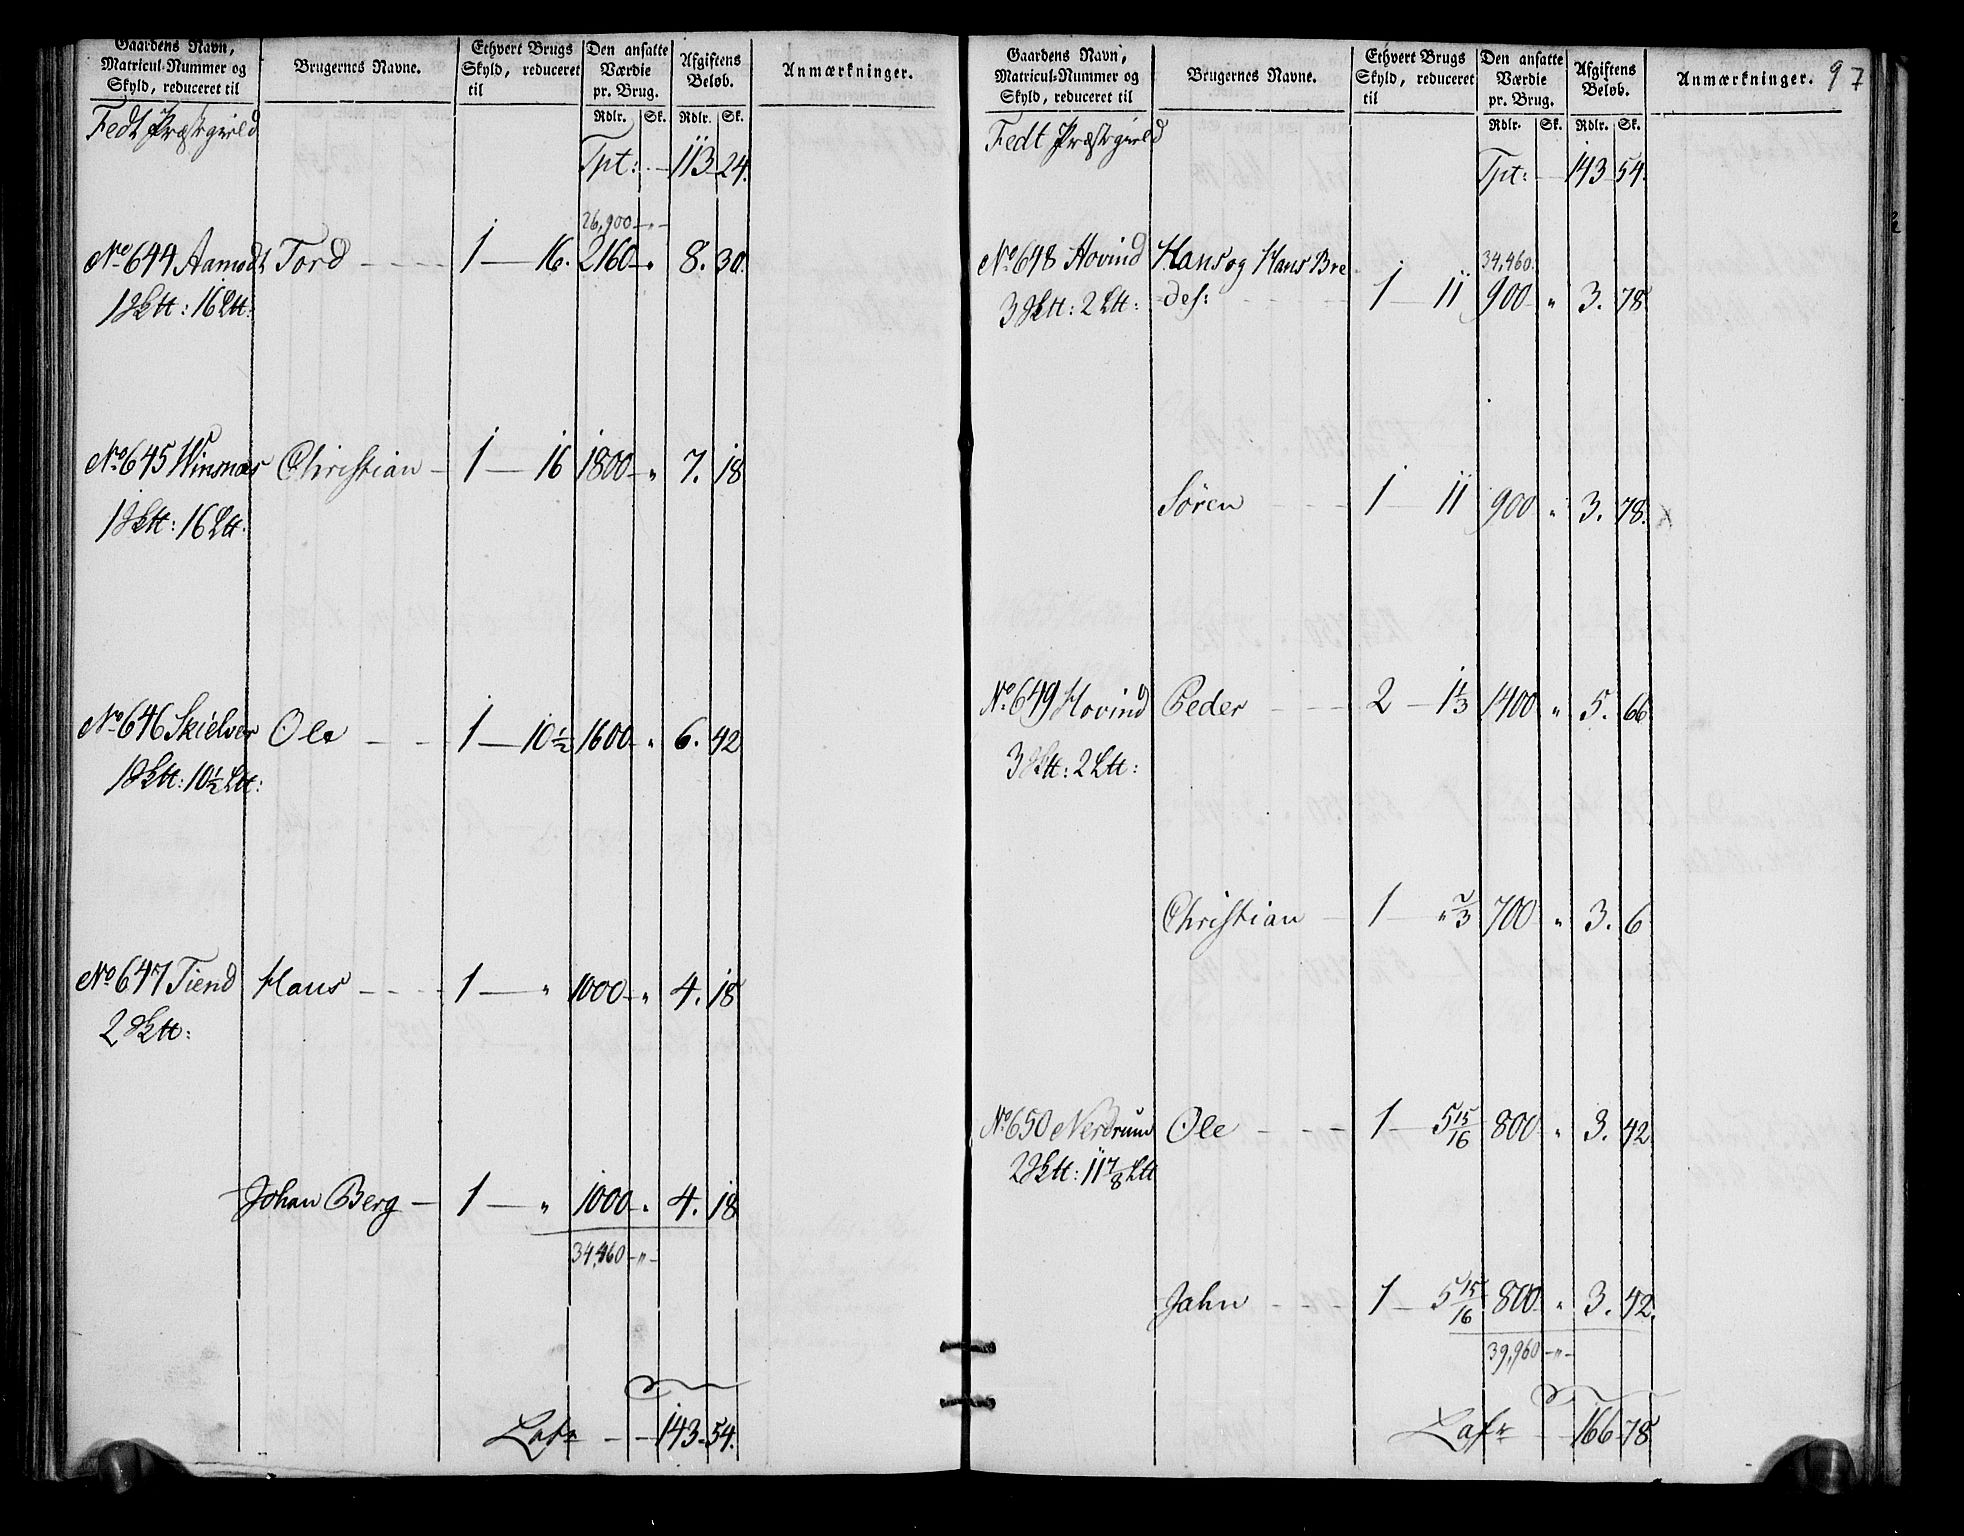 Gaardens Navn, Matricul-Nummer og Skyld, reduceret til | Brugernes Navne. | Ethvert Brugs Skyld, reduceret til | Den ansatte Værdie pr. Brug. | Afgiftens Beløb. | Anmærkninger.
Rdlr. Sk. Rdlr. Sk.
Fedt Præstegield
Tpt: - 113 24.
26,900 - " -
No 644 Aamodt Tord - - - 1 - 16. 2160 - " 8. 30.
1 Sk tt: 16 Ltt:
No 645 Winsnæs Christian - 1 - 16 1800 - " 7. 18
1 Sk tt: 16 Ltt.
No 646 Skielver Ole - - 1 - 10 1/2 1600 - " 6. 42
1 Sk tt: 10 1/2 Ltt:
No 647 Tiend Hans - - - 1 - " 1000 - " 4. 18
2 Sk tt:
Johan Berg - 1 - " 1000 - " 4. 18
34,460 - " -
Lats - - 143 - 54.
Gaardens Navn, Matricul-Nummer og Skyld, reduceret til | Brugernes Navne. | Ethvert Brugs Skyld, reduceret til | Den ansatte Værdie pr. Brug. | Afgiftens Beløb. | Anmærkninger. 97
Rdlr. Sk. Rdlr. Sk.
Fedt Præstegield
Tpt: - 143 54.
34,460.
No 648 Hovind Hans og Hans Bre
3 Sk tt: 2 Ltt: des: - - - 1 - 11 900 " 3. 78.
Søren - - - 1 - 11 900 " 3. 78.
No 649 Hovind Peder - - - 2 - 1 1/3 1400 " 5. 66
3 Sk tt: 2 Ltt:
Christian - 1 - " 2/3 700 " 3. 6
No 650 Nerdrum Ole - - - 1 - 5 15/16 800 " 3. 42
2 Sk tt: 11 7/8 Ltt
Jahn - - - 1 - 5 15/16 800 " 3. 42.
39,960 - " -
Lats - - 166 - 78